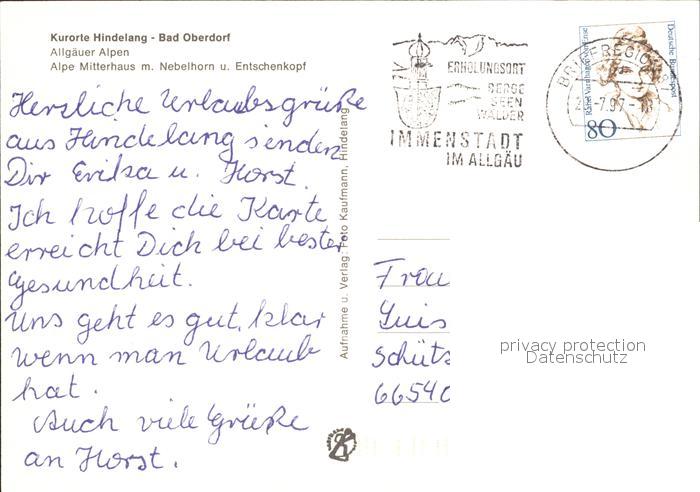 Kurorte Hindelang - Bad Oberdorf
Allgäuer Alpen
Alpe Mitterhaus m. Nebelhorn u. Entschenkopf
Herzliche Urlaubsgrüße
aus Hindelang senden
Dir Erika u. Horst.
Ich hoffe die Karte
erreicht Dich bei bester
Gesundheit.
Uns geht es gut, klar
wenn man Urlaub
hat.
Auch viele Grüße
an Horst.
Aufnahme u. Verlag: Foto Kaufmann, Hindelang
ERHOLUNGSORT
BERGE
SEEN
WÄLDER
IMMENSTADT
IM ALLGÄU
BRIEFREGION
-7.97-
Deutsche Bundespost
80
Frau
Luis
Schütz
6654
privacy protection
Datenschutz